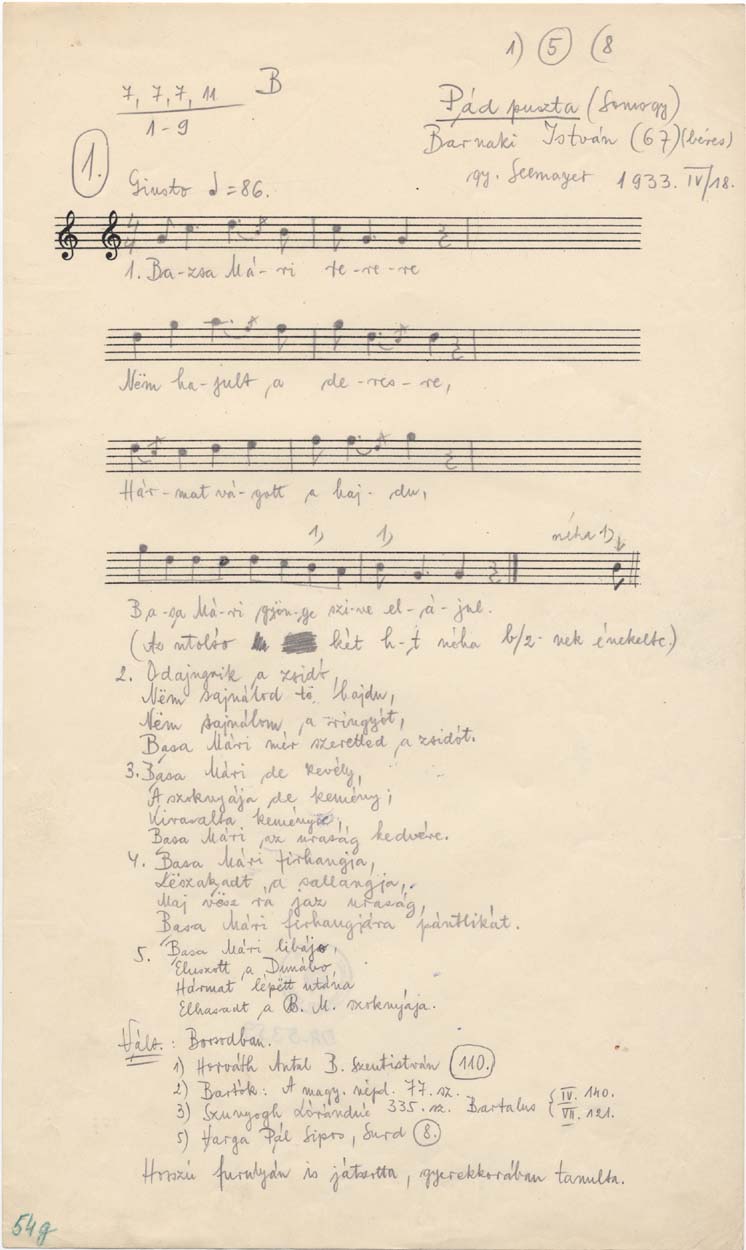 1) 5 (8
7, 7, 7, 11 B
1-9
Pád puszta (Somogy)
Barnaki István (67) (béres)
gy. Seemayer 1933. IV/18.
1.
Giusto = 86.
1. Ba-zsa Má-ri te-re-re
Nëm ha-jult a de-res-re,
Hár-mat vá-gott a haj-du,
1) 1) néha 1)
Ba-sa Má-ri gyön-ge szi-ve el-á-jul.
(Az utolsó két h-t néha b/2-nek énekelte.)
2. a zsidó,
Nëm sajnálod të hajdu,
Nëm sajnálom a ringyót,
Basa Mári mér szeretted a zsidót.
3. Basa Mári de kevély,
A szoknyája de kemény;
Kivasalta
Basa Mári az uraság kedvére.
4. Basa Mári firhangja,
Lëszakadt a sallangja,
Maj vësz rá jaz uraság,
Basa Mári firhangjára pántlikát.
5. Basa Mári libájo,
Eluszott a Dunábo,
Hármat lépëtt utána
Elhasadt a B. M. szoknyája.
Vált.: Borsodban.
1) Horváth Antal B. Szentistván 110.
2) Bartók: A magy. népd. 77. sz.
3) Szunyogh Lórándné 335. sz. Bartalus IV. 140.
VII. 121.
5) Varga Pál Sipos, Surd 8.
Hosszú furulyán is játszotta, gyerekkorában tanulta.
54g